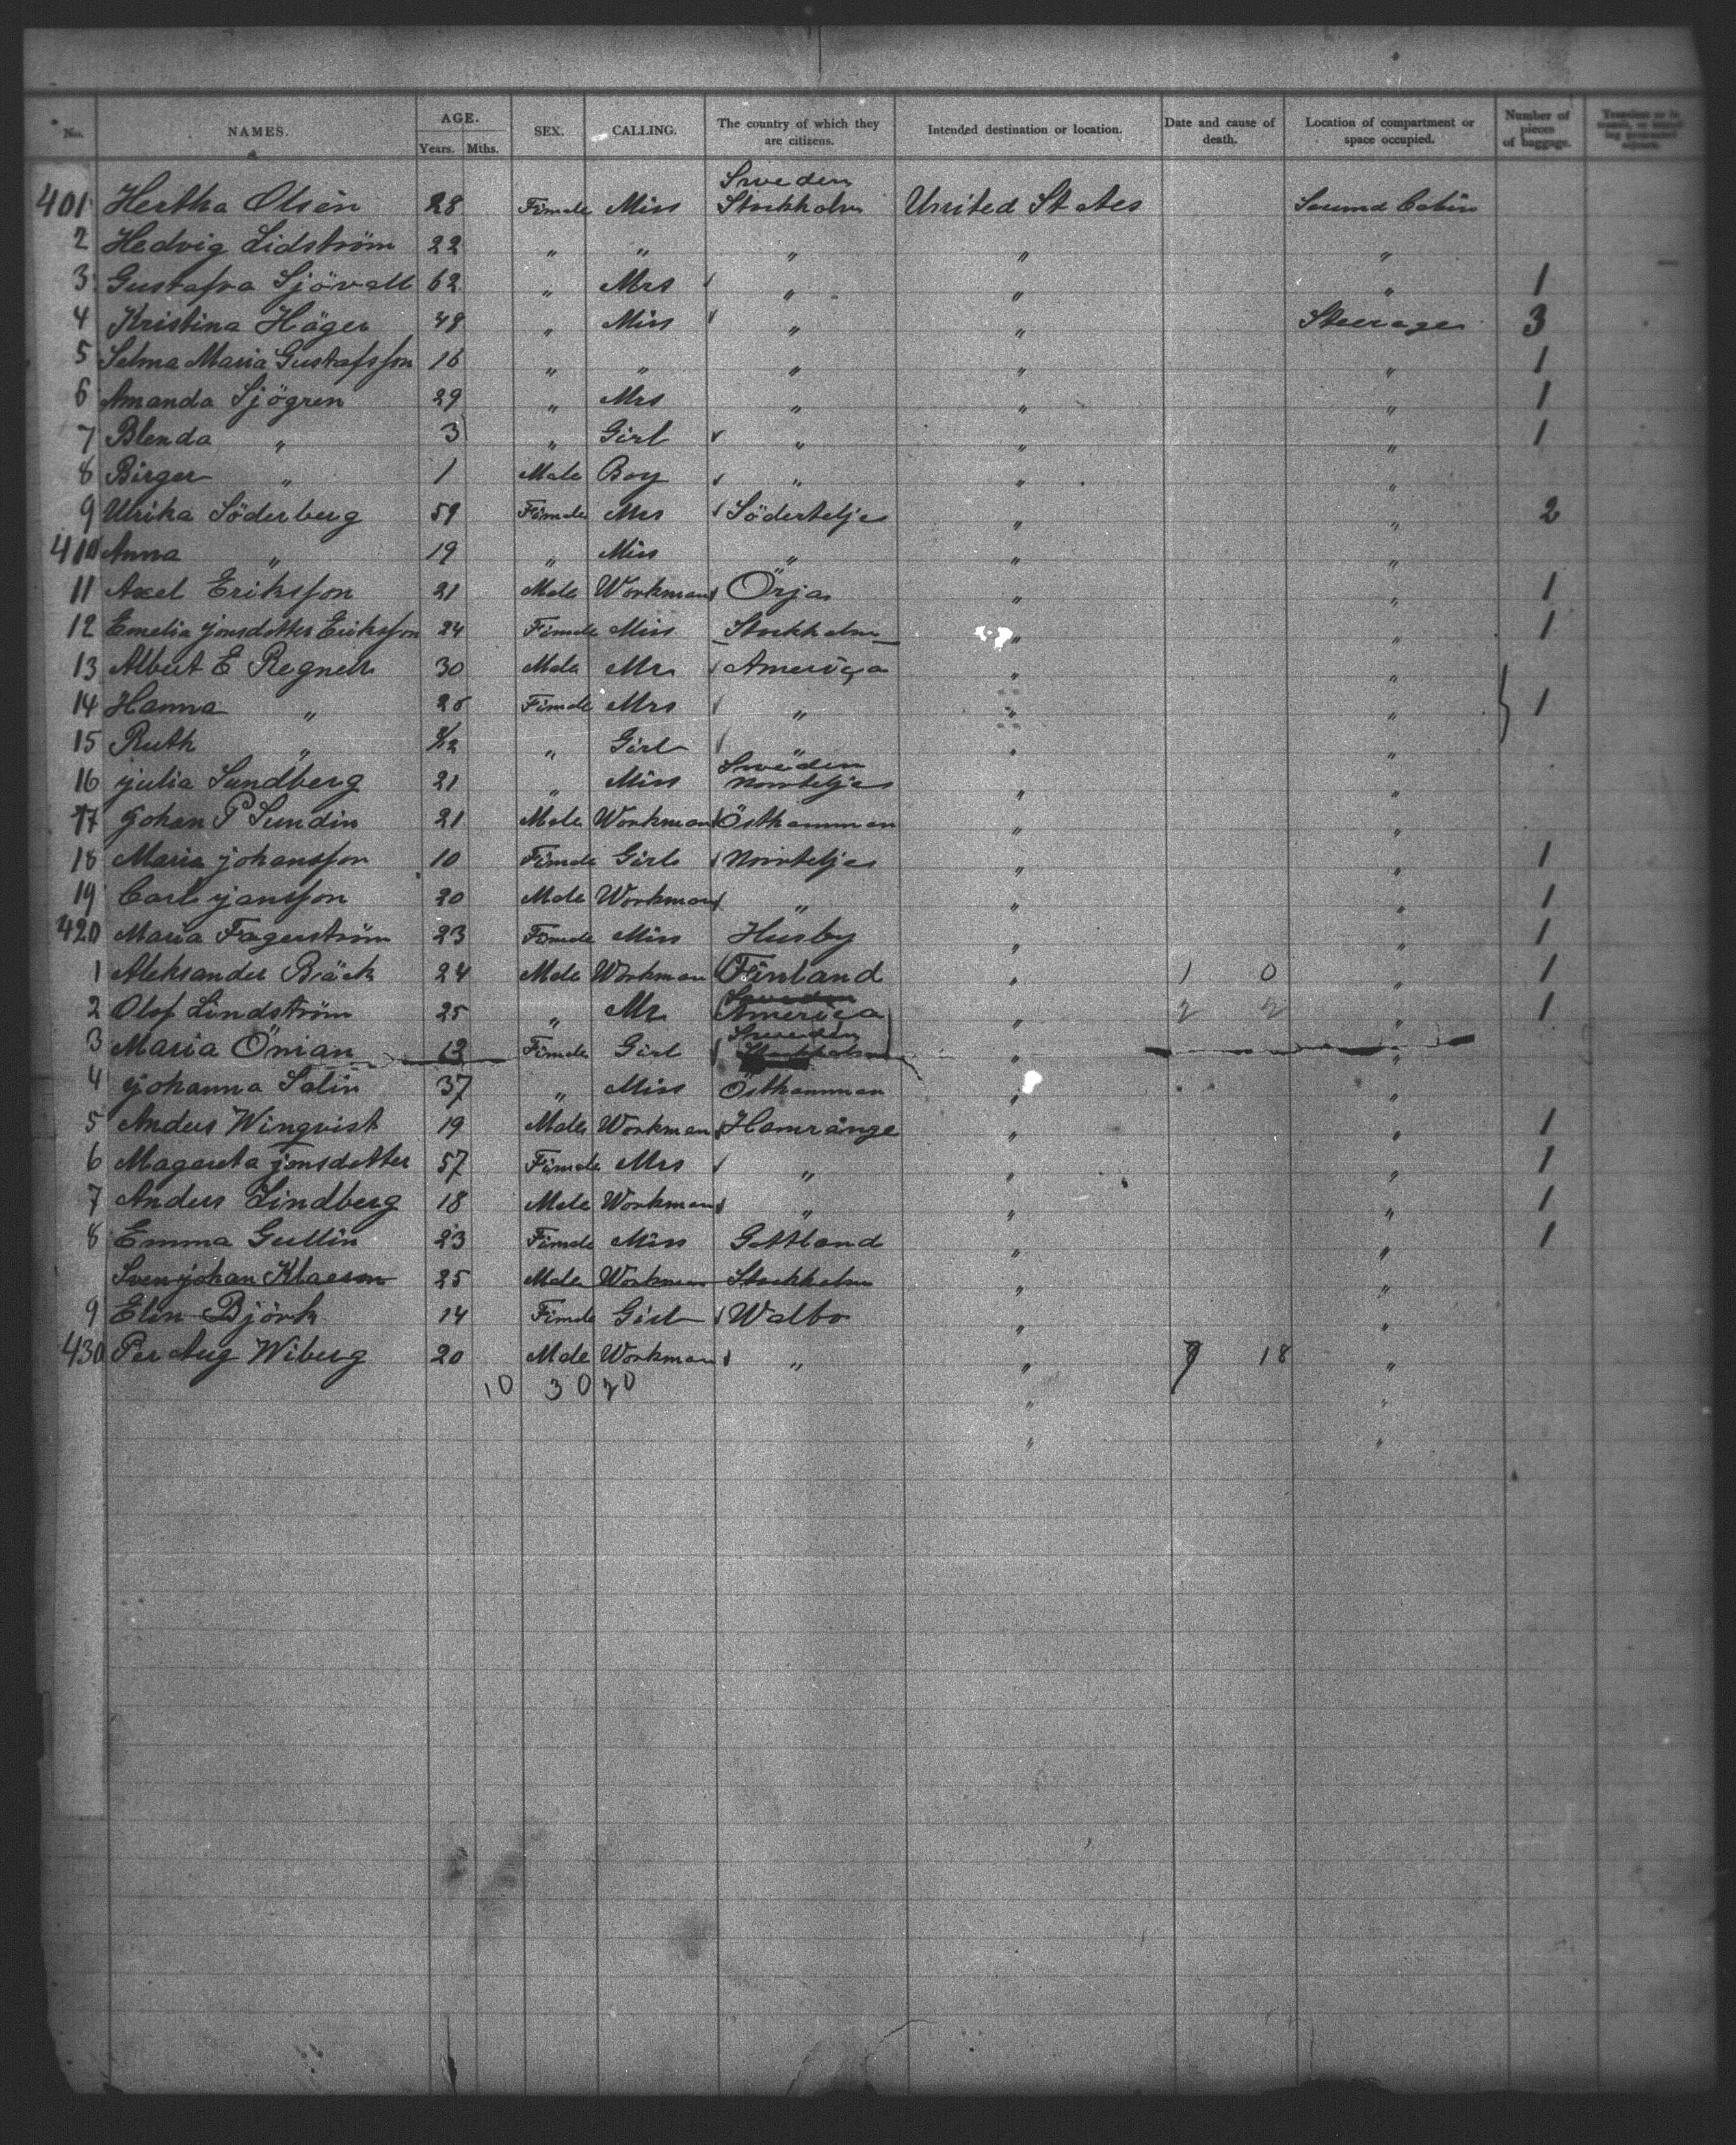 No. NAMES. AGE. Years. Mths. SEX. CALLING. The country of which they are citizens. Intended destination or location. Date and cause of death. Location of compartment or space occupied. Number of pieces of baggage.
Sweden
401 Hertha Olsén 28 Fimale Miss Stockholm United States Second Cabin
2 Hedvig Lidström 22 " " " " "
3 Gustafva Sjövall 62 " Mrs " " " 1
4 Kristina Häger 48 " Miss " " Steerage 3
5 Selma Maria Gustafsson 16 " " " " " 1
6 Amanda Sjögren 29 " Mrs " " " 1
7 Blenda " 3 " Girl " " " 1
8 Birger " 1 Male Boy " " "
9 Ulrika Söderberg 59 Fimale Mrs Södertelje " " 2
410 Anna " 19 " Miss " " "
11 Axel Eriksson 21 Male Workman Örja " " 1
12 Emelia Jonsdotter Eriksson 24 Fimale Miss Stockholm " " 1
13 Albert E Regnell 30 Male Mr America " "
14 Hanna " Fimale Mrs " " " 1
15 Ruth " " Girl " "
Sweden
16 Julia Sundberg 21 " Miss Norrtelje " "
17 Johan P Sundin 21 Male Workman Östhammar " "
18 Maria Johansson 10 Fimale Girl Norrtelje " " 1
19 Carl Jansson 20 Male Workman " " " 1
420 Maria Fagerström 23 Fimale Miss Husby " " 1
1 Aleksander Bäck 24 Male Workman Finland " 1 0 " 1
Sweden
2 Olof Lindström 25 " Mr America " 2 2 " 1
Sweden
3 Maria Öman 13 Fimale Girl Stockholm " "
4 Johanna Salin 37 " Miss Östhammar " "
5 Anders Winqvist 19 Male Workman Hamrånge " " 1
6 Magareta Jonsdotter 57 Fimale Mrs " " " 1
7 Anders Lindberg 18 Male Workman " " " 1
8 Emma Gullin 23 Fimale Miss Gottland " " 1
Sven Johan Klaeson 25 Male Workman Stockholm " "
9 Elin Björk 14 Fimale Girl Walbo " "
430 Per Aug Wiberg 20 Male Workman " " 9 18 "
10 30 20 " "
" "